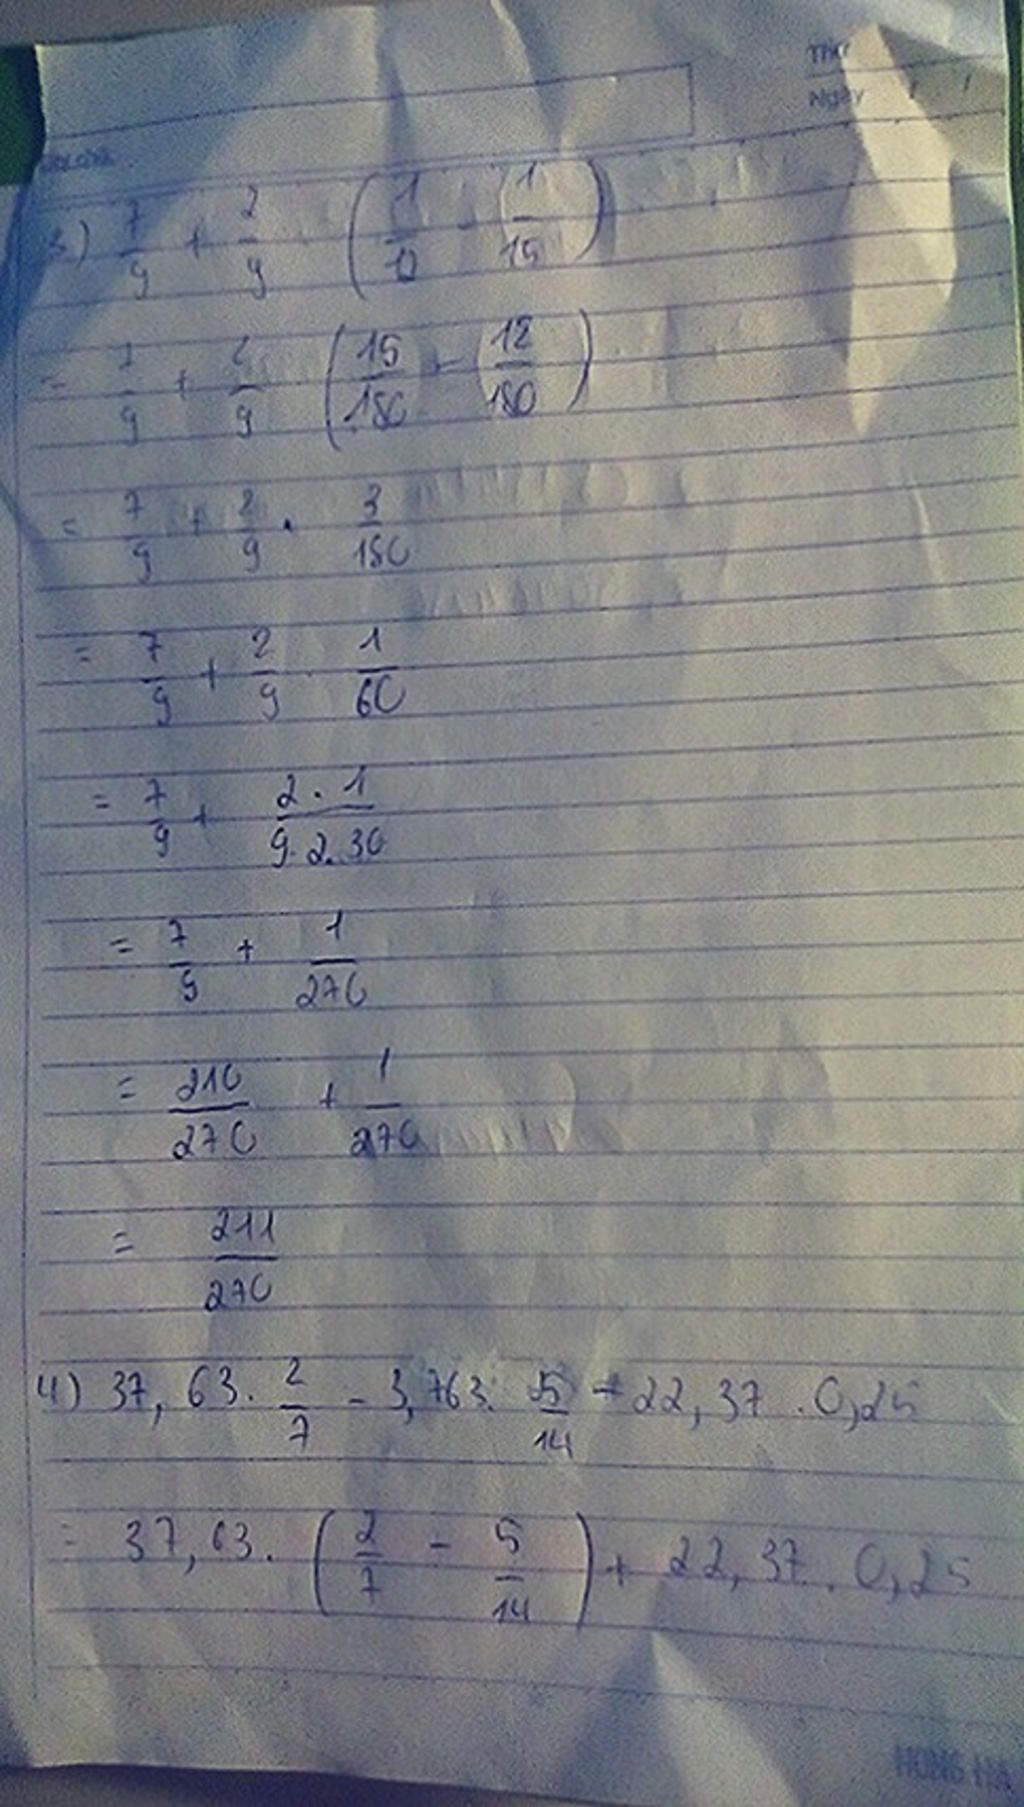 Thứ
Ngày
3) 7/9 + 2/9 · (1/12 - 1/15)
= 7/9 + 2/9 (15/180 - 12/180)
= 7/9 + 2/9 · 3/180
= 7/9 + 2/9 · 1/60
= 7/9 + 2 · 1/9 · 2 · 30
= 7/9 + 1/270
= 210/270 + 1/270
= 211/270
4) 37,63 · 2/7 - 3,763 · 5/14 + 22,37 · 0,25
= 37,63 · (2/7 - 5/14) + 22,37 · 0,25
HONG HA